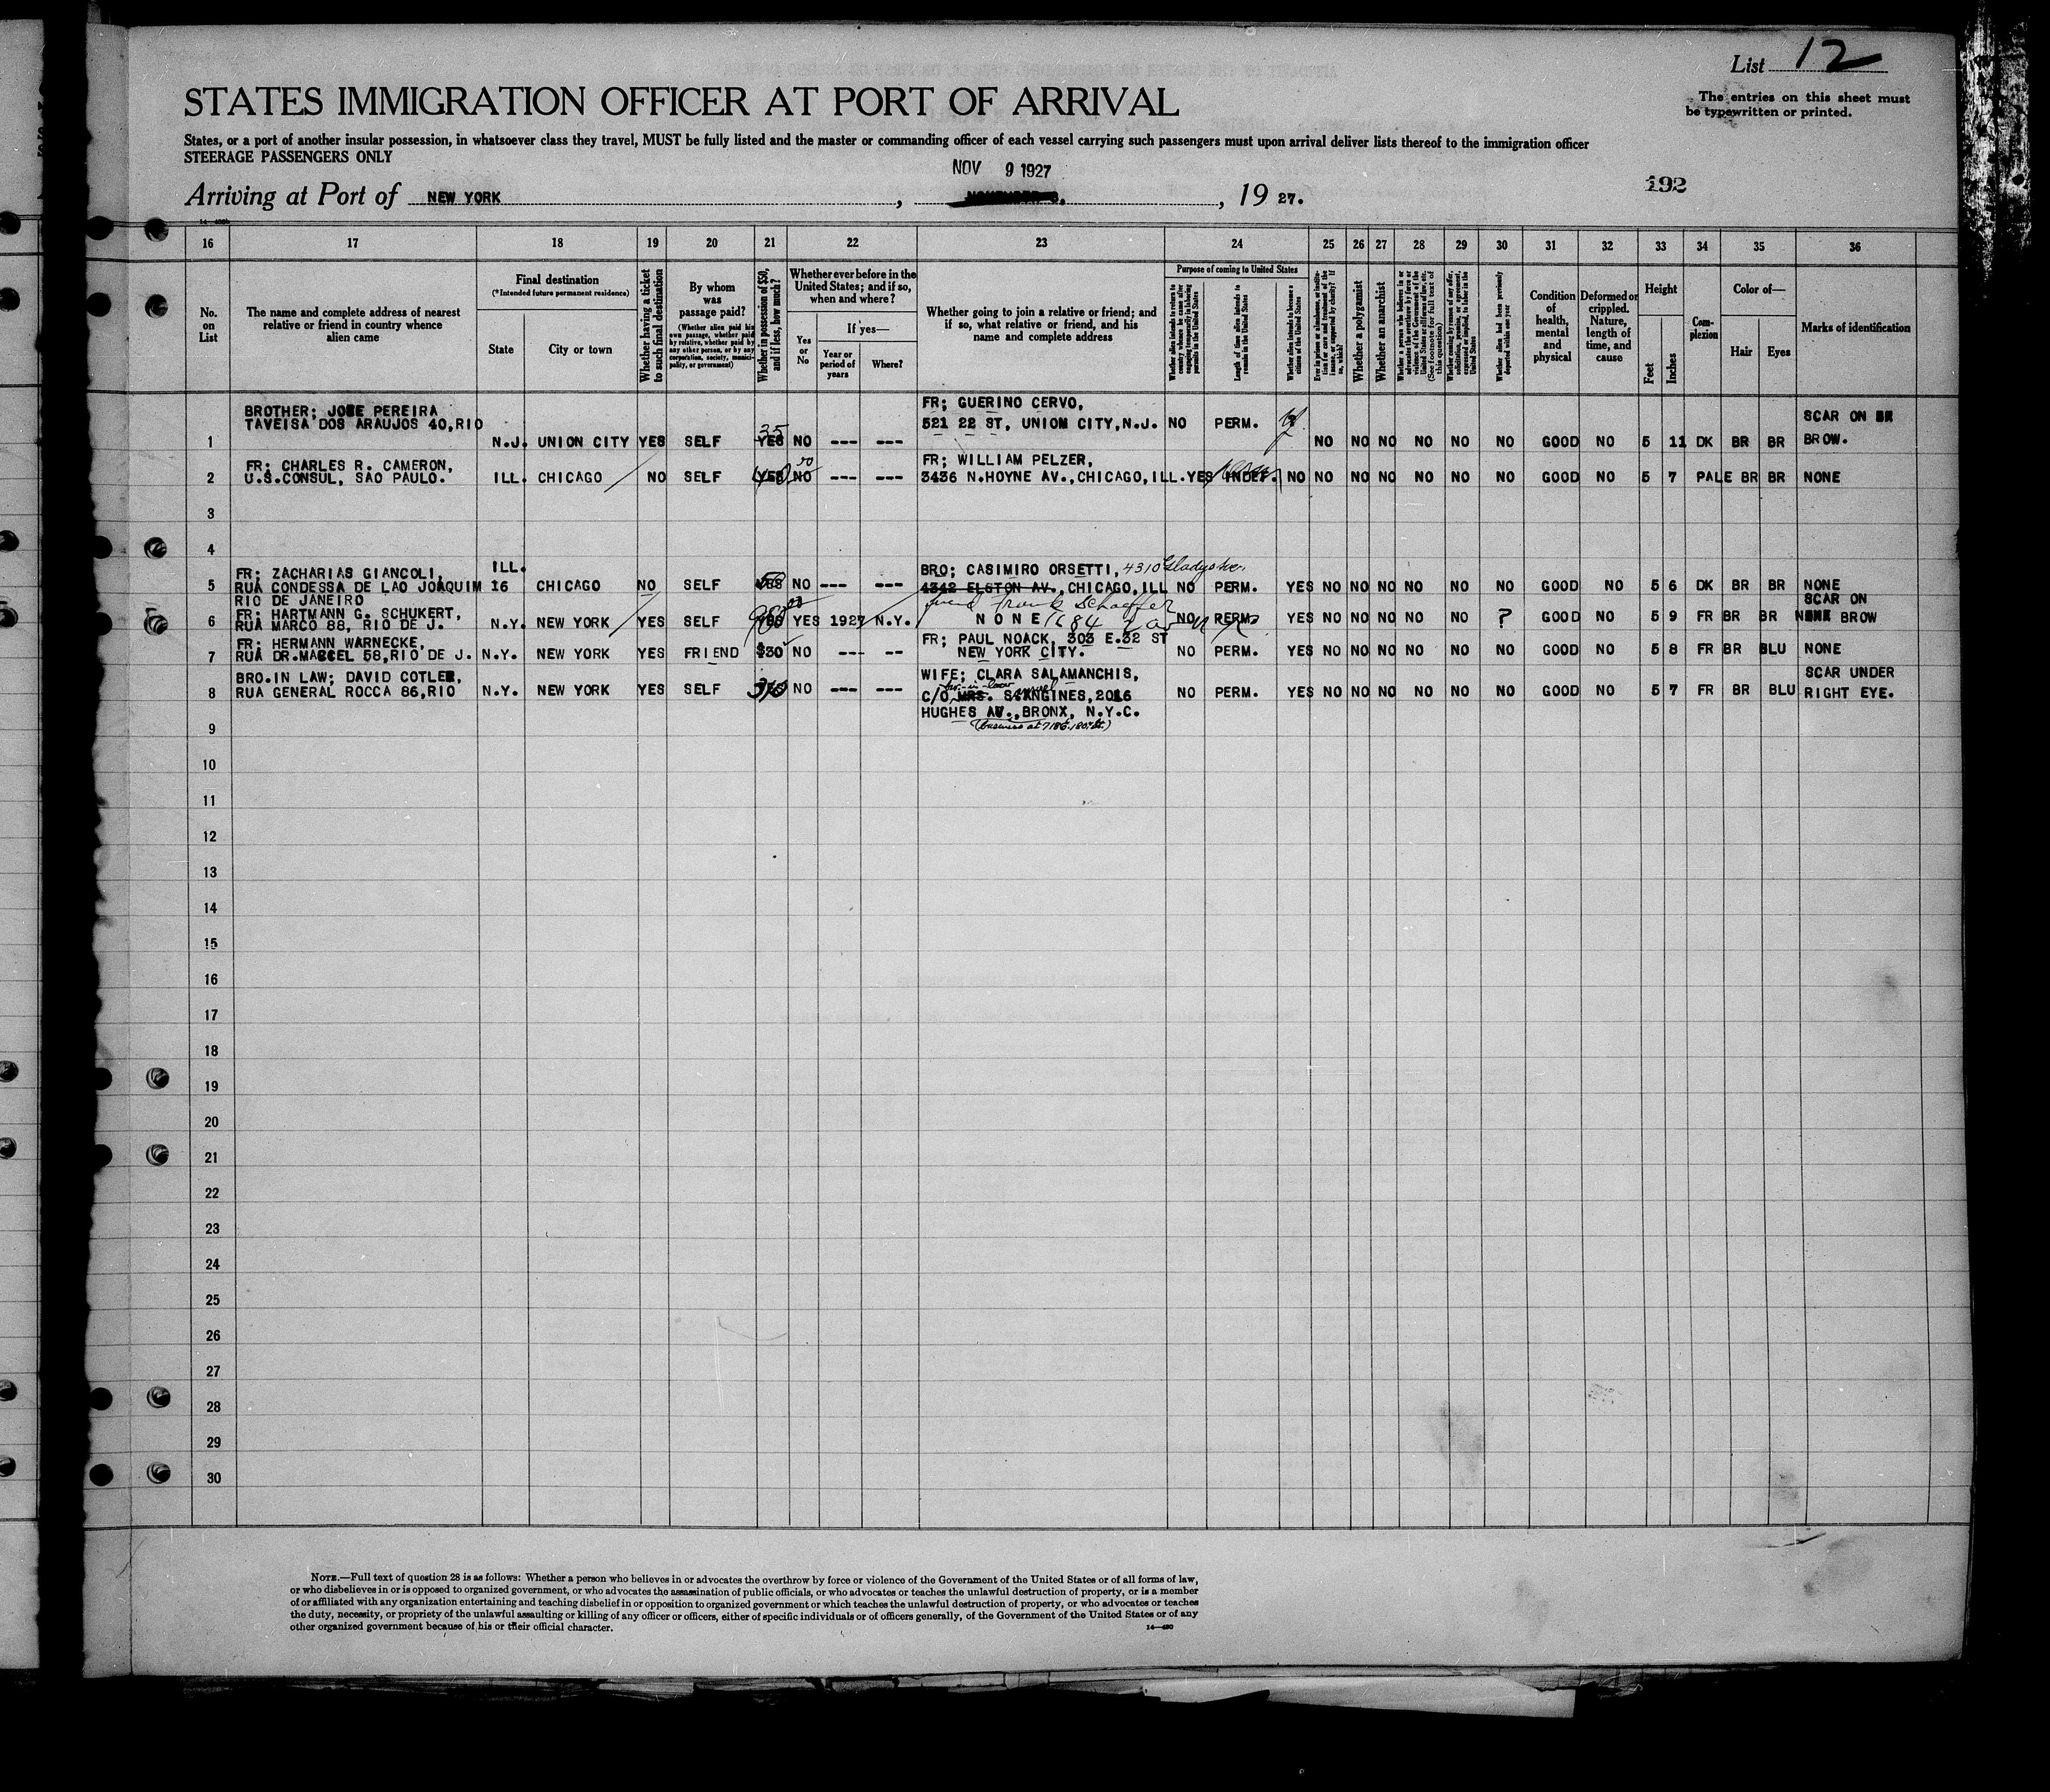 List 12
The entries on this sheet must
be typewritten or printed.
STATES IMMIGRATION OFFICER AT PORT OF ARRIVAL
States, or a port of another insular possession, in whatsoever class they travel, MUST be fully listed and the master or commanding officer of each vessel carrying such passengers must upon arrival deliver lists thereof to the immigration officer
STEERAGE PASSENGERS ONLY
NOV 9 1927
192
Arriving at Port of NEW YORK, , 19 27.
16 17 18 19 20 21 22 23 24 25 26 27 28 29 30 31 32 33 34 35 36
No. on List
The name and complete address of nearest relative or friend in country whence alien came
Final destination
(*Intended future permanent residence)
State
City or town
Whether having a ticket to such final destination
By whom was passage paid?
(Whether alien paid his own passage, whether paid by relative, whether paid by any other person, or by any corporation, society, municipality, or government)
Whether in possession of $50, and if less, how much?
Whether ever before in the United States; and if so, when and where?
Yes or No
If yes—
Year or period of years
Where?
Whether going to join a relative or friend; and if so, what relative or friend, and his name and complete address
Purpose of coming to United States
Whether alien intends to return to country whence he came after engaging temporarily in laboring pursuits in the United States
Length of time alien intends to remain in the United States
Whether alien intends to become a citizen of the United States
Ever in prison or almshouse, or institution for care and treatment of the insane, or supported by charity? If so, which?
Whether a polygamist
Whether an anarchist
Whether a person who believes in or advocates the overthrow by force or violence of the Government of the United States or all forms of law, etc. (See footnote for full text of this question)
Whether coming by reason of any offer, solicitation, promise, or agreement, expressed or implied, to labor in the United States
Whether alien had been previously deported within one year
Condition of health, mental and physical
Deformed or crippled. Nature, length of time, and cause
Height
Feet
Inches
Complexion
Color of—
Hair
Eyes
Marks of identification
BROTHER; JOSE PEREIRA FR; GUERINO CERVO, SCAR ON
TAVEISA DOS ARAUJOS 40,RIO 35 521 22 ST, UNION CITY,N.J. NO PERM.
1 N.J. UNION CITY YES SELF YES NO --- --- NO NO NO NO NO NO GOOD NO 5 11 DK BR BR BROW.
FR; CHARLES R. CAMERON, FR; WILLIAM PELZER,
2 U.S.CONSUL, SAO PAULO. ILL. CHICAGO NO SELF YES NO --- --- 3436 N.HOYNE AV.,CHICAGO,ILL. YES INDEF. NO NO NO NO NO NO NO GOOD NO 5 7 PALE BR BR NONE
3
4
FR; ZACHARIAS GIANCOLI, ILL. BRO; CASIMIRO ORSETTI, 4310 Gladys Ave.
5 RUA CONDESSA DE LAO JOAQUIM 16 CHICAGO NO SELF NO --- --- 4342 ELSTON AV., CHICAGO,ILL NO PERM. YES NO NO NO NO NO NO GOOD NO 5 6 DK BR BR NONE
RIO DE JANEIRO friend Frank Schaeffer SCAR ON
FR; HARTMANN G. SCHUKERT,
6 RUA MARCO 88, RIO DE J. N.Y. NEW YORK YES SELF YES YES 1927 N.Y. NONE 1684 NO PERM. YES NO NO NO NO NO ? GOOD NO 5 9 FR BR BR BROW
FR; HERMANN WARNECKE, FR; PAUL NOACK, 303 E.32 ST
7 RUA DR.MACCEL 58,RIO DE J. N.Y. NEW YORK YES FRIEND $30 NO --- -- NEW YORK CITY. NO PERM. YES NO NO NO NO NO NO GOOD NO 5 8 FR BR BLU NONE
BRO.IN LAW; DAVID COTLER, WIFE; CLARA SALAMANCHIS, SCAR UNDER
bro-in-law Samuel
8 RUA GENERAL ROCCA 86,RIO N.Y. NEW YORK YES SELF NO --- --- C/O MRS. SCANGINES, 2016 NO PERM. YES NO NO NO NO NO NO GOOD NO 5 7 FR BR BLU RIGHT EYE.
HUGHES AV., BRONX, N.Y.C.
9 (business at 718 E. 180th St.)
10
11
12
13
14
15
16
17
18
19
20
21
22
23
24
25
26
27
28
29
30
NOTE.—Full text of question 28 is as follows: Whether a person who believes in or advocates the overthrow by force or violence of the Government of the United States or of all forms of law,
or who disbelieves in or is opposed to organized government, or who advocates the assassination of public officials, or who advocates or teaches the unlawful destruction of property, or is a member
of or affiliated with any organization entertaining and teaching disbelief in or opposition to organized government or which teaches the unlawful destruction of property, or who advocates or teaches
the duty, necessity, or propriety of the unlawful assaulting or killing of any officer or officers, either of specific individuals or of officers generally, of the Government of the United States or of any
other organized government because of his or their official character.
14—480